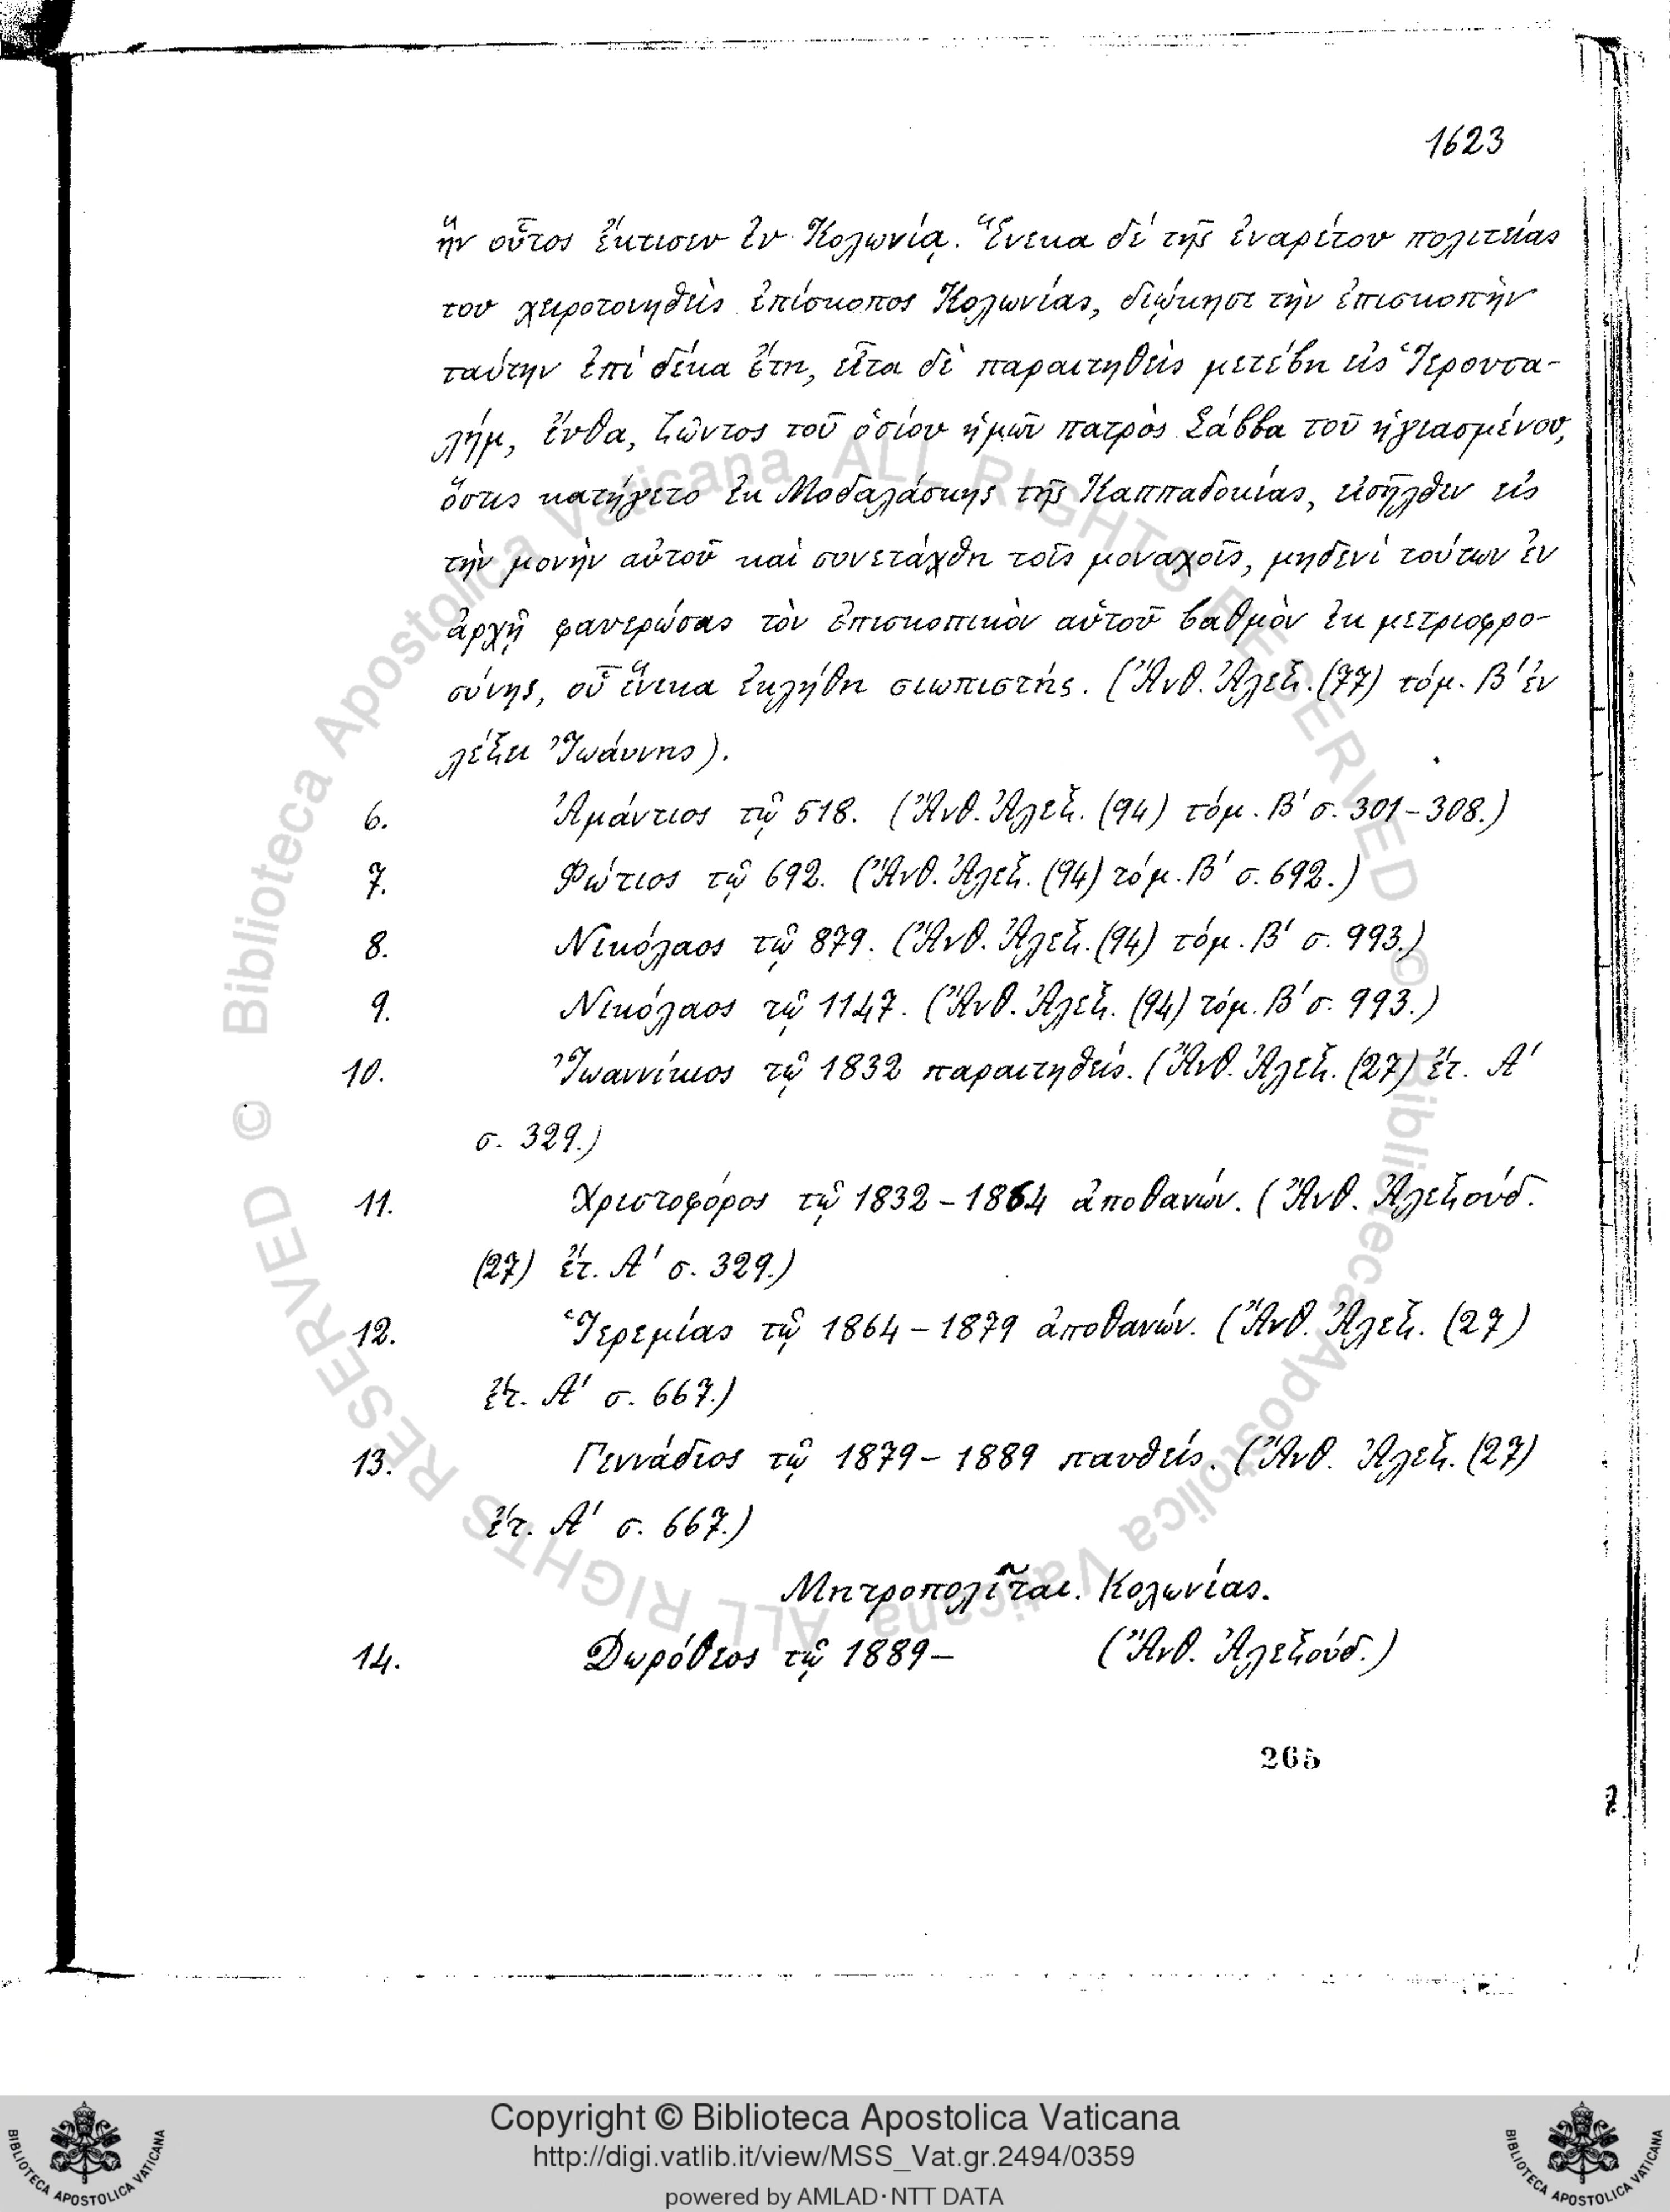 1623
ἣν οὗτος ἔκτισεν ἐν Κολωνίᾳ. Ἕνεκα δὲ τῆς ἐναρέτου πολιτείας
του χειροτονηθεὶς ἐπίσκοπος Κολωνίας, διῴκησε τὴν ἐπισκοπὴν
ταύτην ἐπὶ δέκα ἔτη, εἶτα δὲ παραιτηθεὶς μετέβη εἰς Ἱερουσα-
λήμ, ἔνθα, ζῶντος τοῦ ὁσίου ἡμῶν πατρὸς Σάββα τοῦ ἡγιασμένου,
ὅστις κατήγετο ἐκ Μοδαλάσκης τῆς Καππαδοκίας, εἰσῆλθεν εἰς
τὴν μονὴν αὐτοῦ καὶ συνετάχθη τοῖς μοναχοῖς, μηδενὶ τούτων ἐν
ἀρχῇ φανερώσας τὸν ἐπισκοπικὸν αὐτοῦ βαθμὸν ἐκ μετριοφρο-
σύνης, οὗ ἕνεκα ἐκλήθη σιωπιστής. (Ἄνθ. Ἀλεξ. (77) τόμ. Β' ἐν
λέξει Ἰωάννης).
6. Ἀμάντιος τῷ 518. (Ἄνθ. Ἀλεξ. (94) τόμ. Β' σ. 301-308.)
7. Φώτιος τῷ 692. (Ἄνθ. Ἀλεξ. (94) τόμ. Β' σ. 692.)
8. Νικόλαος τῷ 879. (Ἄνθ. Ἀλεξ. (94) τόμ. Β' σ. 993.)
9. Νικόλαος τῷ 1147. (Ἄνθ. Ἀλεξ. (94) τόμ. Β' σ. 993.)
10. Ἰωαννίκιος τῷ 1832 παραιτηθείς. (Ἄνθ. Ἀλεξ. (27) ἔτ. Α'
σ. 329.)
11. Χριστοφόρος τῷ 1832-1864 ἀποθανών. (Ἄνθ. Ἀλεξούδ.
(27) ἔτ. Α' σ. 329.)
12. Ἱερεμίας τῷ 1864-1879 ἀποθανών. (Ἄνθ. Ἀλεξ. (27)
ἔτ. Α' σ. 667.)
13. Γεννάδιος τῷ 1879-1889 παυθείς. (Ἄνθ. Ἀλεξ. (27)
ἔτ. Α' σ. 667.)
Μητροπολῖται Κολωνίας.
14. Δωρόθεος τῷ 1889- (Ἄνθ. Ἀλεξούδ.)
265
© Biblioteca Apostolica Vaticana ALL RIGHTS RESERVED © Biblioteca Apostolica Vaticana ALL RIGHTS RESERVED
Copyright © Biblioteca Apostolica Vaticana
http://digi.vatlib.it/view/MSS_Vat.gr.2494/0359
powered by AMLAD·NTT DATA
BIBLIOTECA APOSTOLICA VATICANA
BIBLIOTECA APOSTOLICA VATICANA